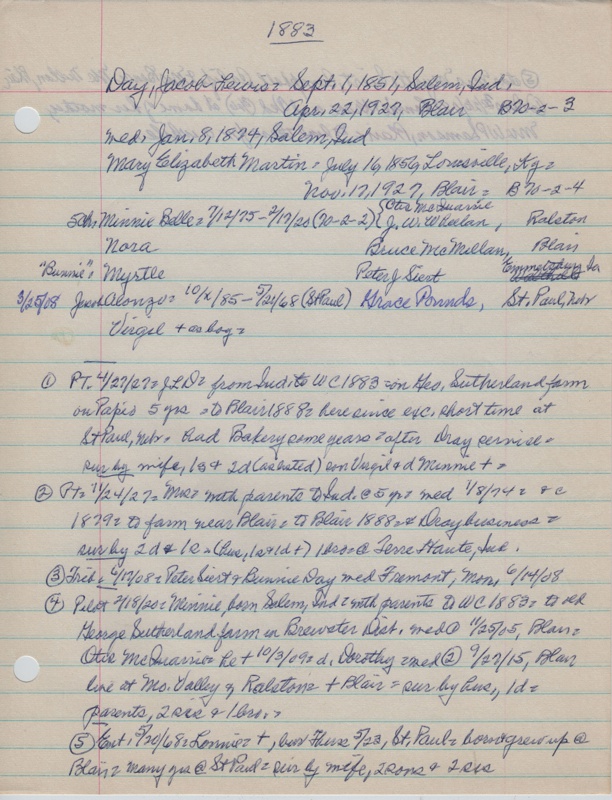 1883
Day, Jacob Lewis = Sept. 1, 1851, Salem, Ind.
Apr. 22, 1927, Blair B70-2-3
med. Jan. 8, 1874, Salem, Ind
Mary Elizabeth Martin = July 16, 1856, Louisville, Ky =
Nov. 17, 1927, Blair = B70-2-4
5 chn Minnie Belle = 7/12/75 - 2/17/20 (70-2-2) { Otis McQuarrie
J. W. Whelan, Ralston
Nora Bruce McMillan, Blair
"Bunnie" = Myrtle Peter J Siert
3/25/08 Jacob Alonzo = 85 - 5/21/68 (St Paul) Grace Pounds, St. Paul, Nebr
Virgil + as boy =
① PT. 4/27/27 = J L D = from Ind to WC 1883 = on Geo. Sutherland farm
on Papio 5 yrs = to Blair 1888 = here since exc. short time at
St Paul, Nebr. = Had Bakery some years = after Dray service =
sur by wife, 1 s & 2d (as listed) son Virgil & d Minnie + =
② PT = 11/24/27 = Mrs = with parents to Ind @ 5 yr = med 1/8/74 = & c
1879 = to farm near Blair = to Blair 1888 = & Dray business =
sur by 2 d & 1 s = (hus, 1s & 1d +) 1 bro = @ Terre Haute, Ind.
③ Trib = 6/17/08 = Peter Siert & Bunnie Day med Fremont, Mon, 6/14/08
④ Pilot 2/18/20 = Minnie, born Salem, Ind = with parents to WC 1883 = to old
George Sutherland farm in Brewster Dist. med @ 11/25/05, Blair =
Otis McQuarrie = he + 10/3/09 = d. Dorothy = med ② 9/27/15, Blair
live at Mo. Valley & Ralston = + Blair = sur by hus, 1d =
parents, 2 sis & 1 bro. =
⑤ Ent. 5/30/68 = Lonnie = +, bur Thurs 5/23, St. Paul = born & grew up @
Blair = many yrs @ St Paul = sur by wife, 2 sons & 2 sis